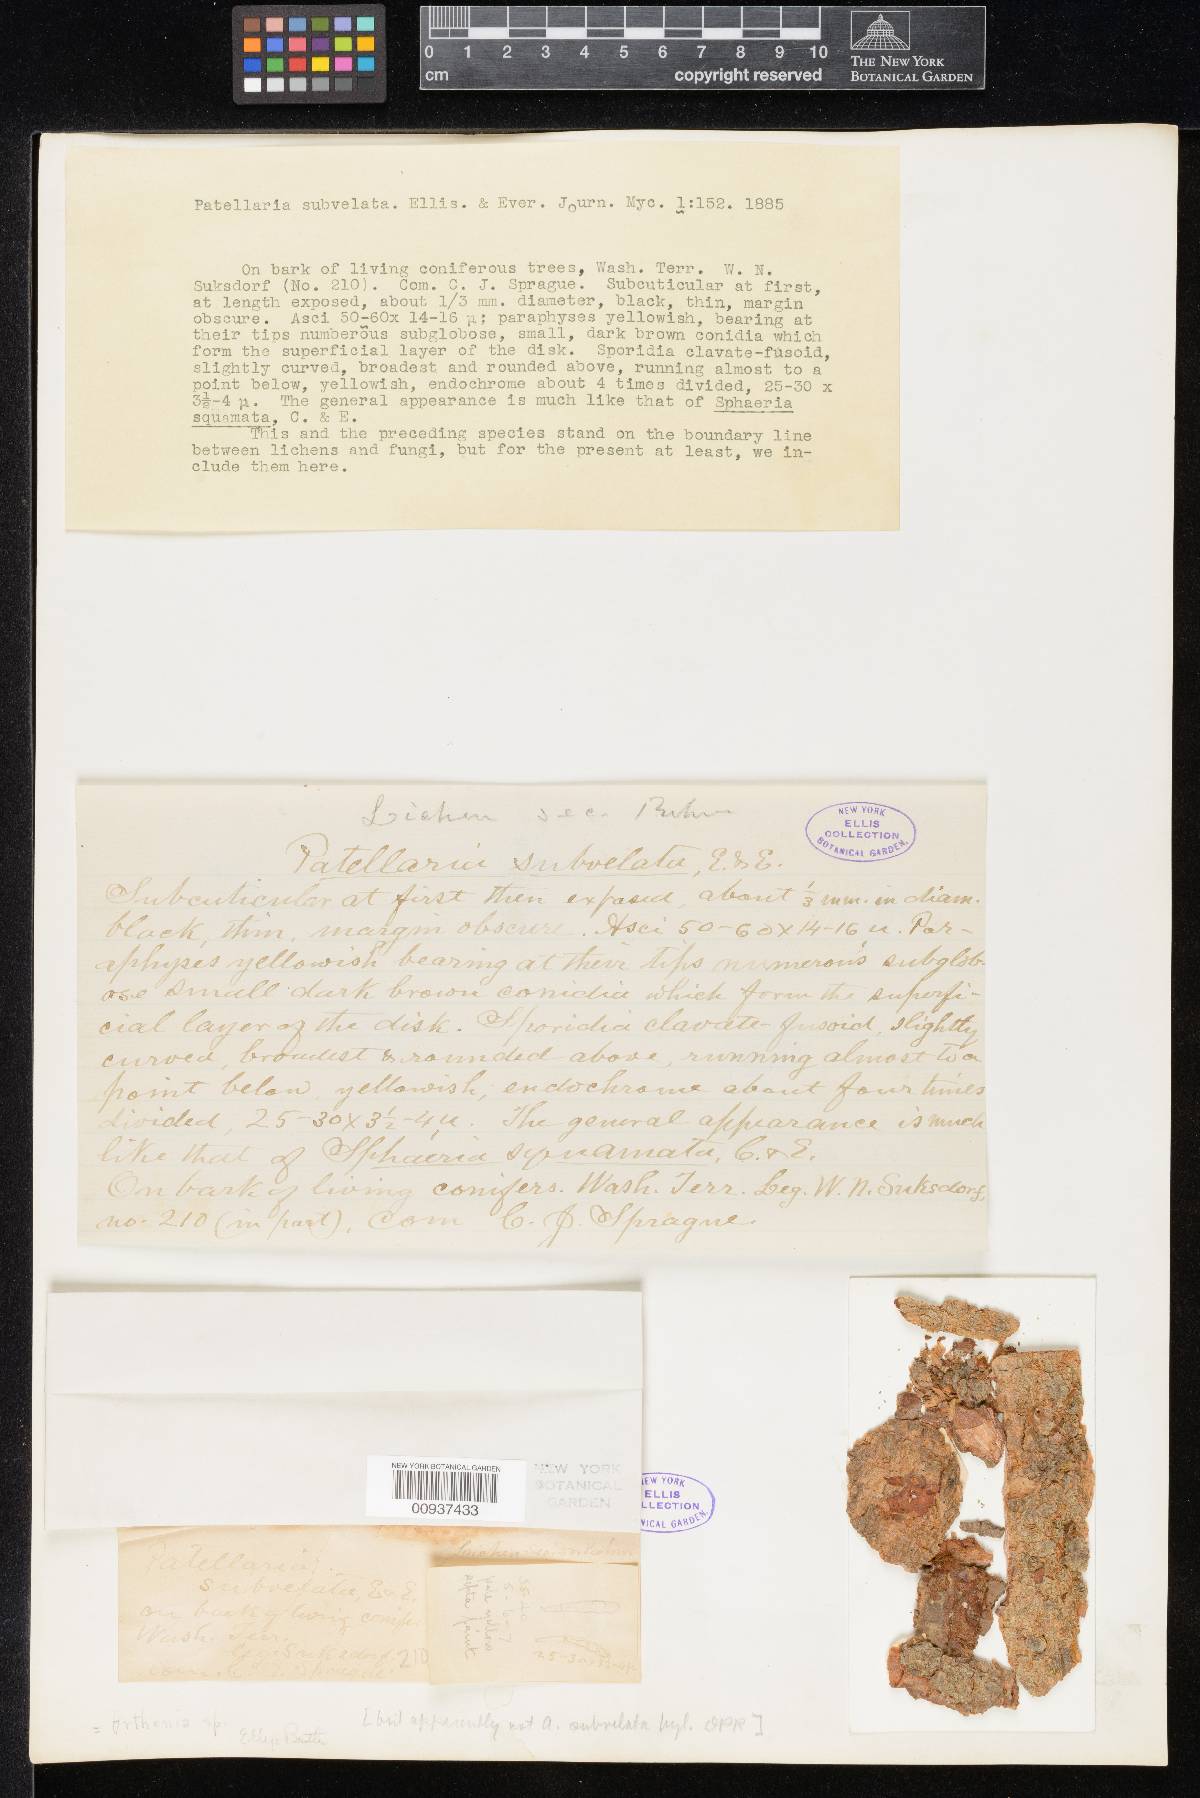 0 1 2 3 4 5 6 7 8 9 10
cm
copyright reserved
THE NEW YORK
BOTANICAL GARDEN
Patellaria subvelata. Ellis. & Ever. Journ. Myc. 1:152. 1885
On bark of living coniferous trees, Wash. Terr. W. N.
Suksdorf (No. 210). Com. C. J. Sprague. Subcuticular at first,
at length exposed, about 1/3 mm. diameter, black, thin, margin
obscure. Asci 50-60x 14-16 µ; paraphyses yellowish, bearing at
their tips numberous subglobose, small, dark brown conidia which
form the superficial layer of the disk. Sporidia clavate-fusoid,
slightly curved, broadest and rounded above, running almost to a
point below, yellowish, endochrome about 4 times divided, 25-30 x
3½-4 µ. The general appearance is much like that of Sphaeria
squamata, C. & E.
This and the preceding species stand on the boundary line
between lichens and fungi, but for the present at least, we in-
clude them here.
Lichen sec. Rehm
NEW YORK
ELLIS
COLLECTION
BOTANICAL GARDEN.
Patellaria subvelata, E. & E.
Subcuticular at first then exposed, about ⅓ mm. in diam.
black, thin, margin obscure. Asci 50-60x14-16 u. Par-
aphyses yellowish bearing at their tips numerous subglob-
ose small dark brown conidia which form the superfi-
cial layer of the disk. Sporidia clavate-fusoid, slightly
curved, broadest & rounded above, running almost to a
point below, yellowish, endochrome about four times
divided, 25-30x3½-4u. The general appearance is much
like that of Sphaeria squamata, C. & E.
On bark of living conifers. Wash. Terr. Leg. W. N. Suksdorf,
no. 210 (in part), Com C. J. Sprague.
NEW YORK BOTANICAL GARDEN
00937433
NEW YORK
BOTANICAL
GARDEN
NEW YORK
ELLIS
COLLECTION
BOTANICAL GARDEN.
Patellaria
subvelata, E & E.
on bark of living conifer
Wash. Terr.
Leg Suksdorf 210
com. C. J. Sprague
= Arthonia sp.
[but apparently not A. subvelata Nyl. ]